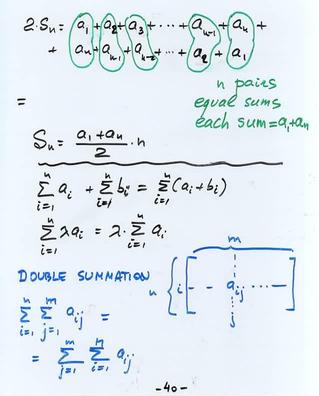 2·Sₙ = a₁ + a₂ + a₃ + ··· + aₙ₋₁ + aₙ +
+ aₙ + aₙ₋₁ + aₙ₋₂ + ··· + a₂ + a₁
n pairs
equal sums
each sum = a₁+aₙ
=
Sₙ = (a₁ + aₙ)/2 · n
∑ᵢ₌₁ⁿ aᵢ + ∑ᵢ₌₁ⁿ bᵢ = ∑ᵢ₌₁ⁿ (aᵢ + bᵢ)
∑ᵢ₌₁ⁿ λaᵢ = λ·∑ᵢ₌₁ⁿ aᵢ
m
DOUBLE SUMMATION
n { i [ – – aᵢⱼ ··· — ]
j
∑ᵢ₌₁ⁿ ∑ⱼ₌₁ᵐ aᵢⱼ =
= ∑ⱼ₌₁ᵐ ∑ᵢ₌₁ⁿ aᵢⱼ
-40-